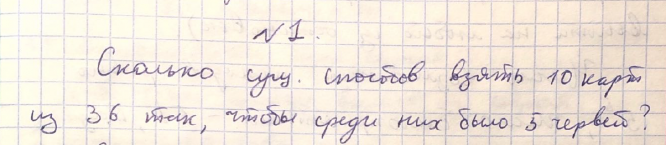 №1.
Сколько сущ. способов взять 10 карт
из 36 так, чтобы среди них было 5 червей?